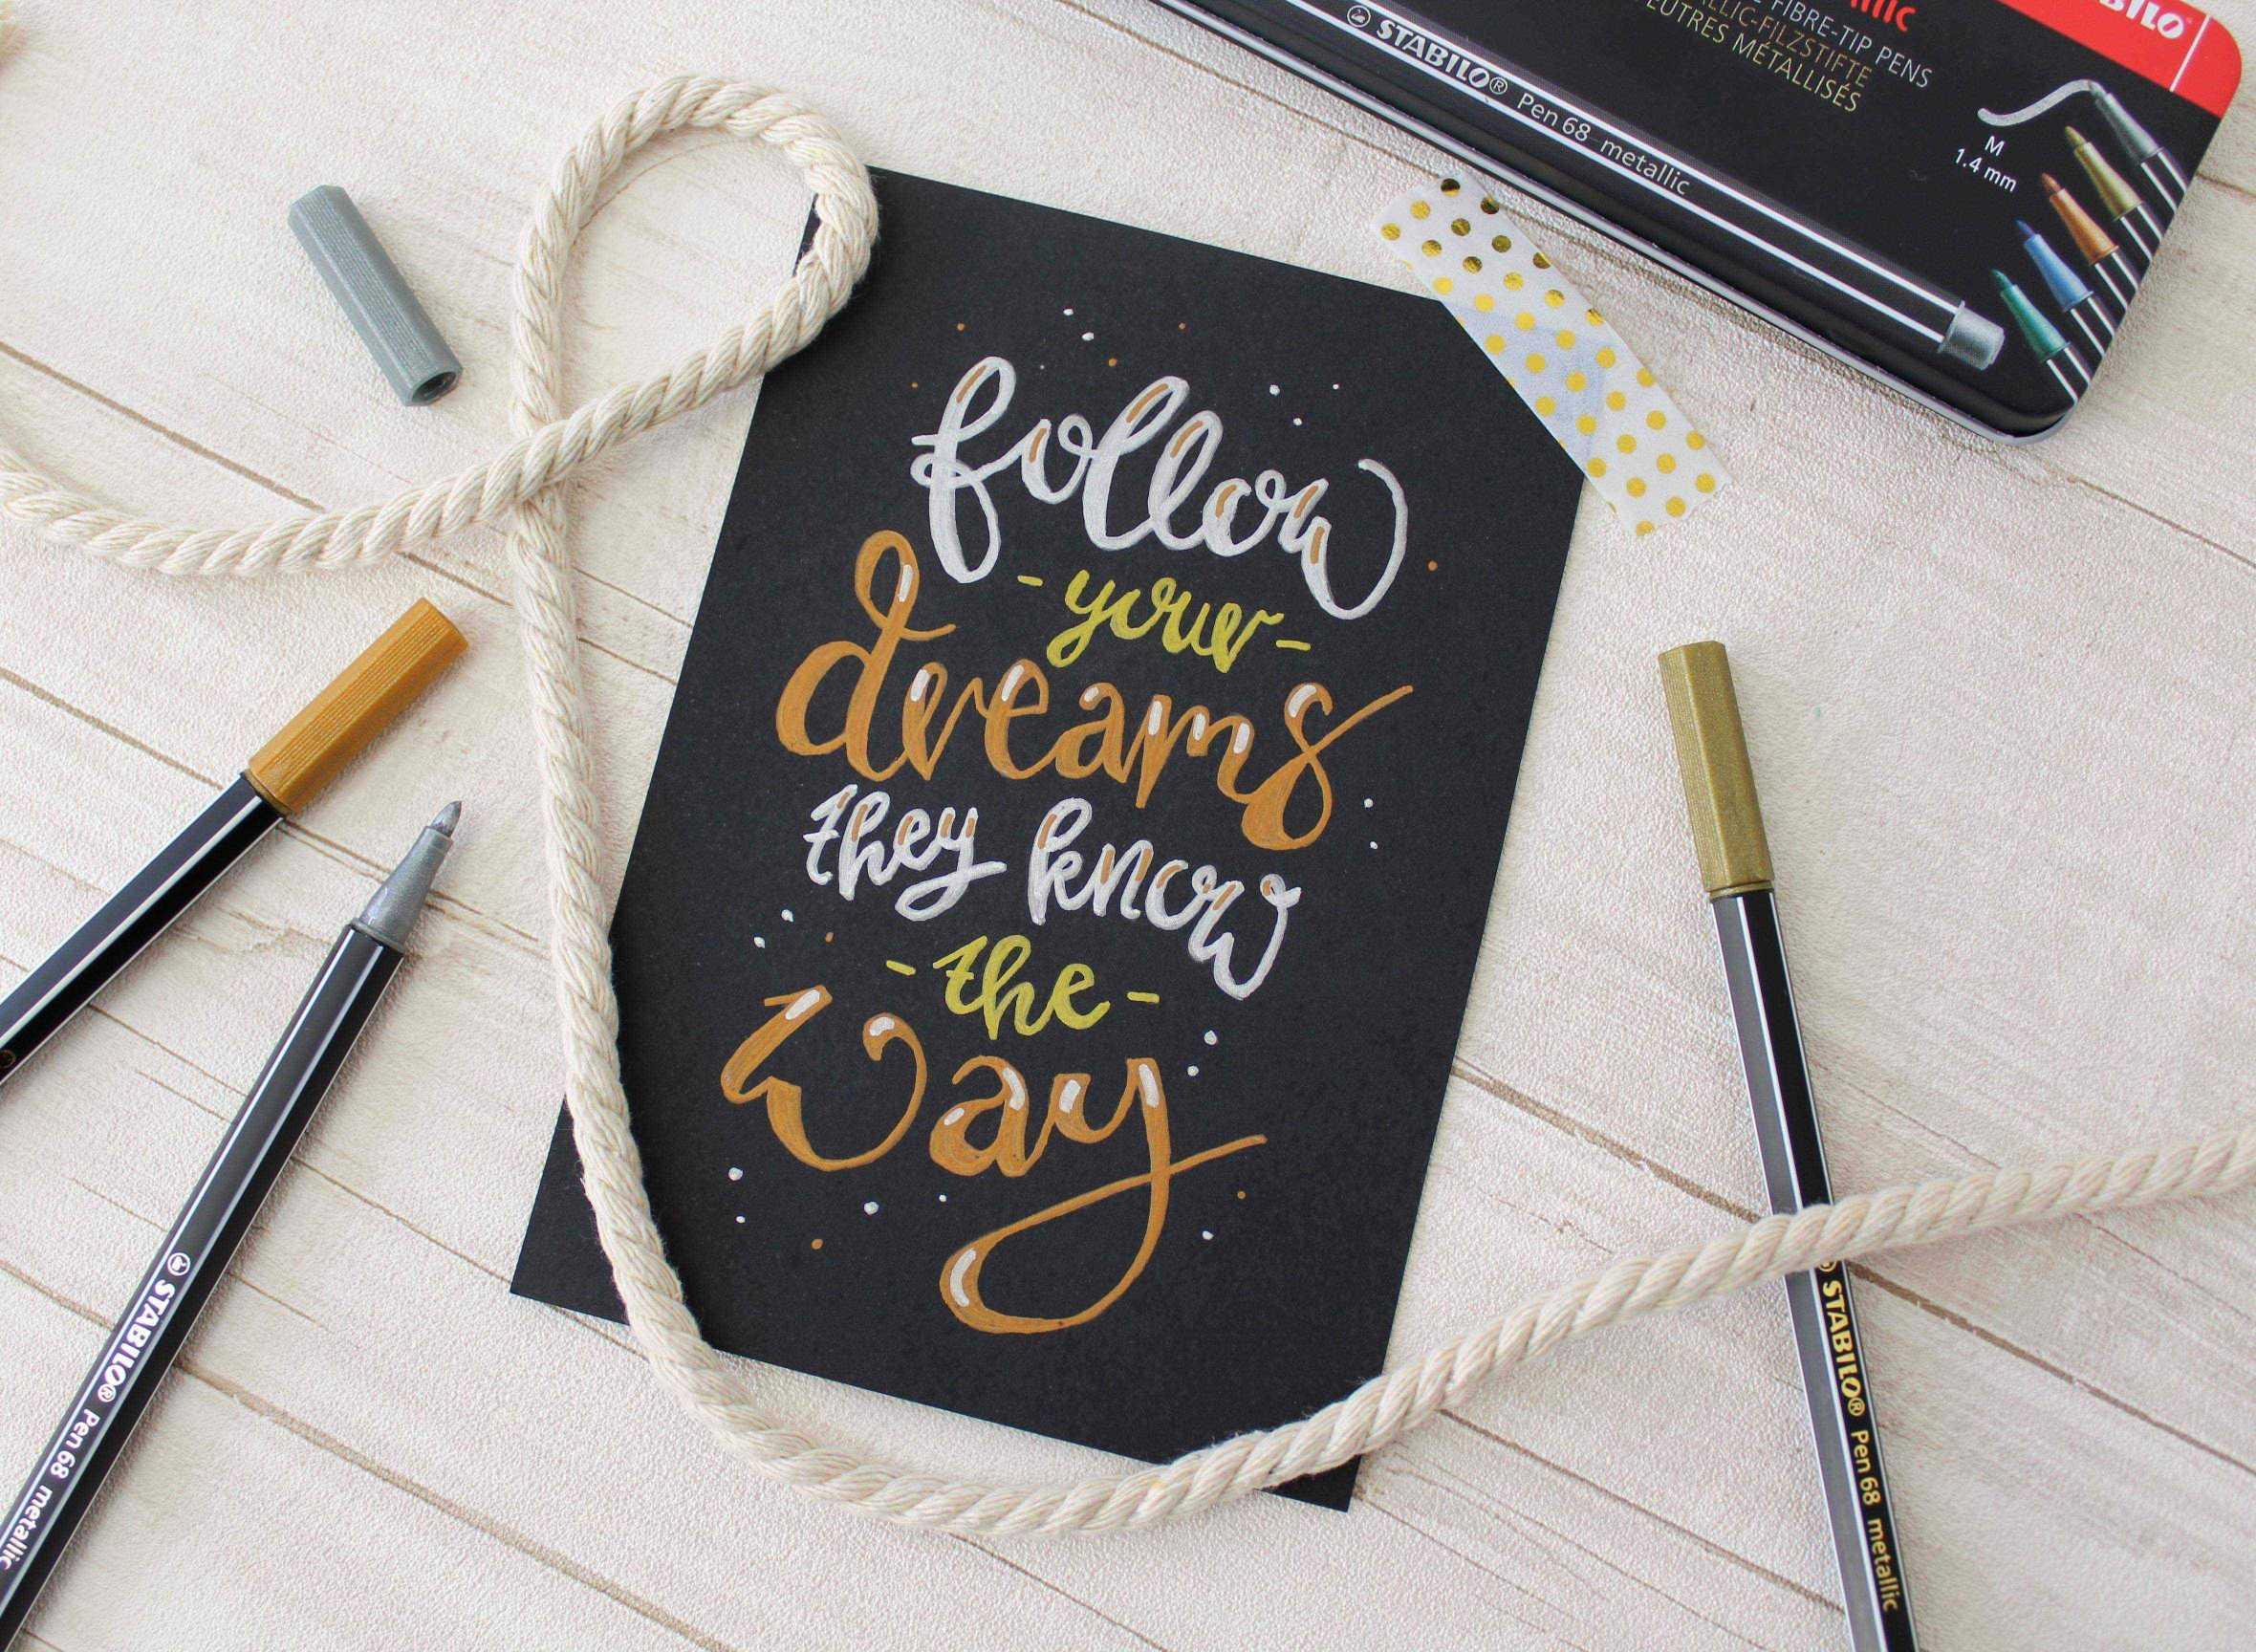 follow
- your -
dreams
they know
- the -
way
STABILO
FIBRE-TIP PENS
METALLIC-FILZSTIFTE
FEUTRES MÉTALLISÉS
STABILO® Pen 68 metallic
M
1.4 mm
STABILO® Pen 68 metallic
STABILO® Pen 68 metallic